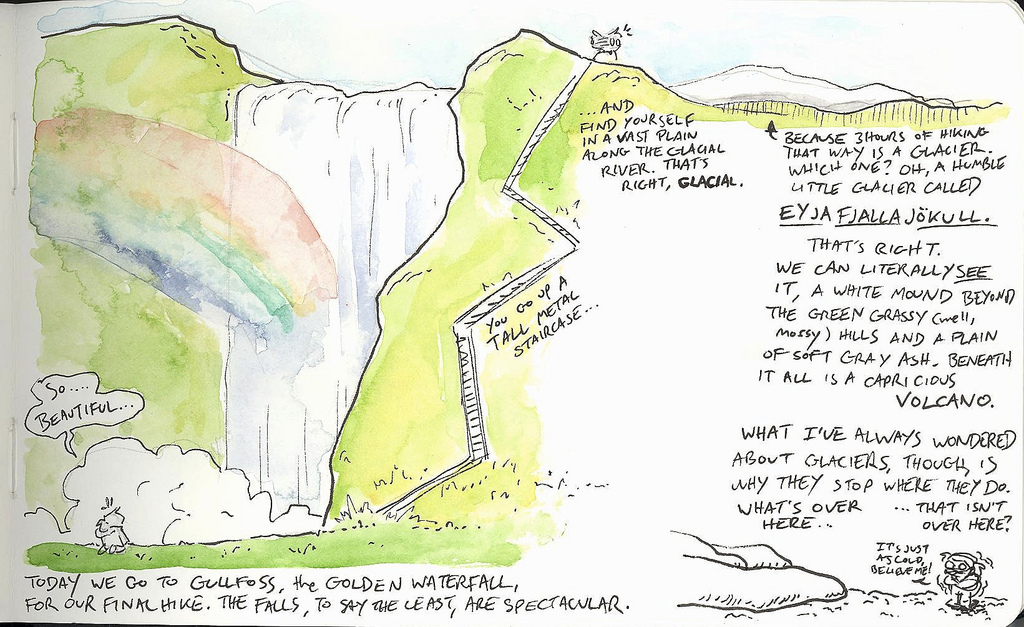 SO....
BEAUTIFUL...
TODAY WE GO TO GULLFOSS, the GOLDEN WATERFALL,
FOR OUR FINAL HIKE. THE FALLS, TO SAY THE LEAST, ARE SPECTACULAR.
YOU GO UP A
TALL METAL
STAIRCASE...
...AND
FIND YOURSELF
IN A VAST PLAIN
ALONG THE GLACIAL
RIVER. THAT'S
RIGHT, GLACIAL.
BECAUSE 3 HOURS OF HIKING
THAT WAY IS A GLACIER.
WHICH ONE? OH, A HUMBLE
LITTLE GLACIER CALLED
EYJAFJALLAJÖKULL.
THAT'S RIGHT.
WE CAN LITERALLY SEE
IT, A WHITE MOUND BEYOND
THE GREEN GRASSY (well,
mossy) HILLS AND A PLAIN
OF SOFT GRAY ASH. BENEATH
IT ALL IS A CAPRICIOUS
VOLCANO.
WHAT I'VE ALWAYS WONDERED
ABOUT GLACIERS, THOUGH, IS
WHY THEY STOP WHERE THEY DO.
WHAT'S OVER
HERE...
...THAT ISN'T
OVER HERE?
IT'S JUST
AS COLD,
BELIEVE ME!